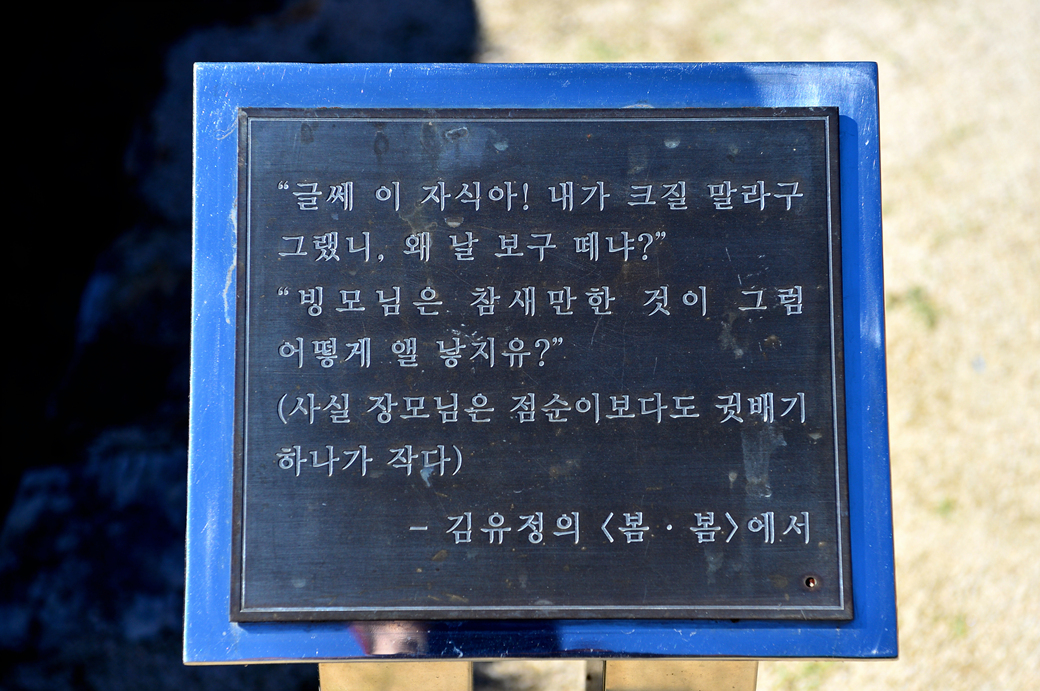 “글쎄 이 자식아! 내가 크질 말라구
그랬니, 왜 날 보구 떼냐?”
“빙모님은 참새만한 것이 그럼
어떻게 앨 낳지유?”
(사실 장모님은 점순이보다도 귓배기
하나가 작다)
- 김유정의 〈봄·봄〉에서